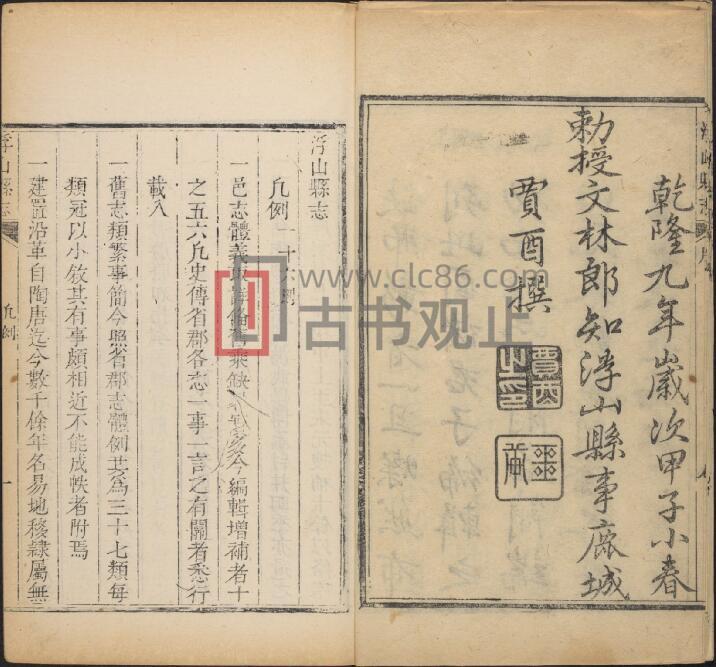 乾隆九年歲次甲子小春
勅授文林郎知浮山縣事鹿城
賈酉撰
浮山縣志
凡例二十六則
一邑志體義取詳備舊乘缺畧今編輯增補者十
之五六凡史傳省郡各志一事一言之有關者悉行
載入
一舊志類繁事簡今照省郡志體例共為三十七類每
類冠以小敘其有事頗相近不能成帙者附焉
一建置沿革自陶唐迄今數千餘年名易地移隸屬無
浮山縣志
凡例
一
www.clc86.com
古书观止